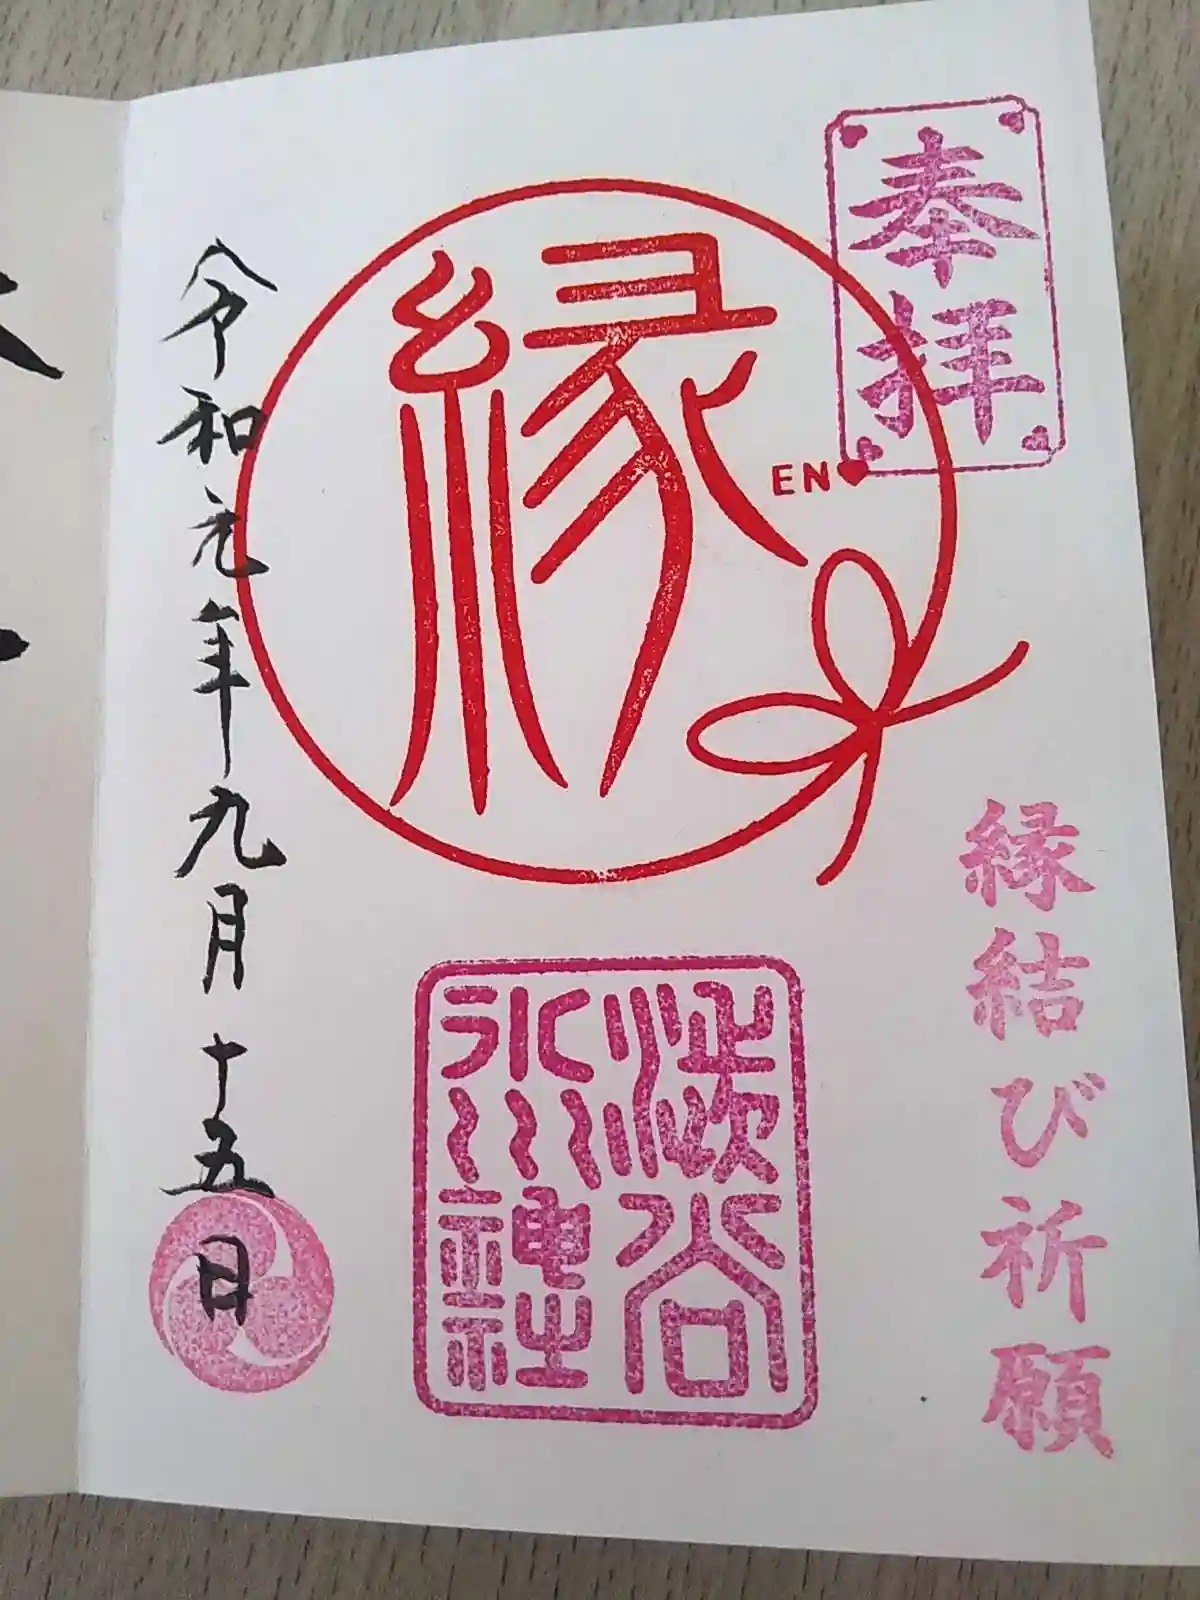 奉拝
縁結び祈願
縁
EN
渋谷
氷川
神社
令和元年九月十五日